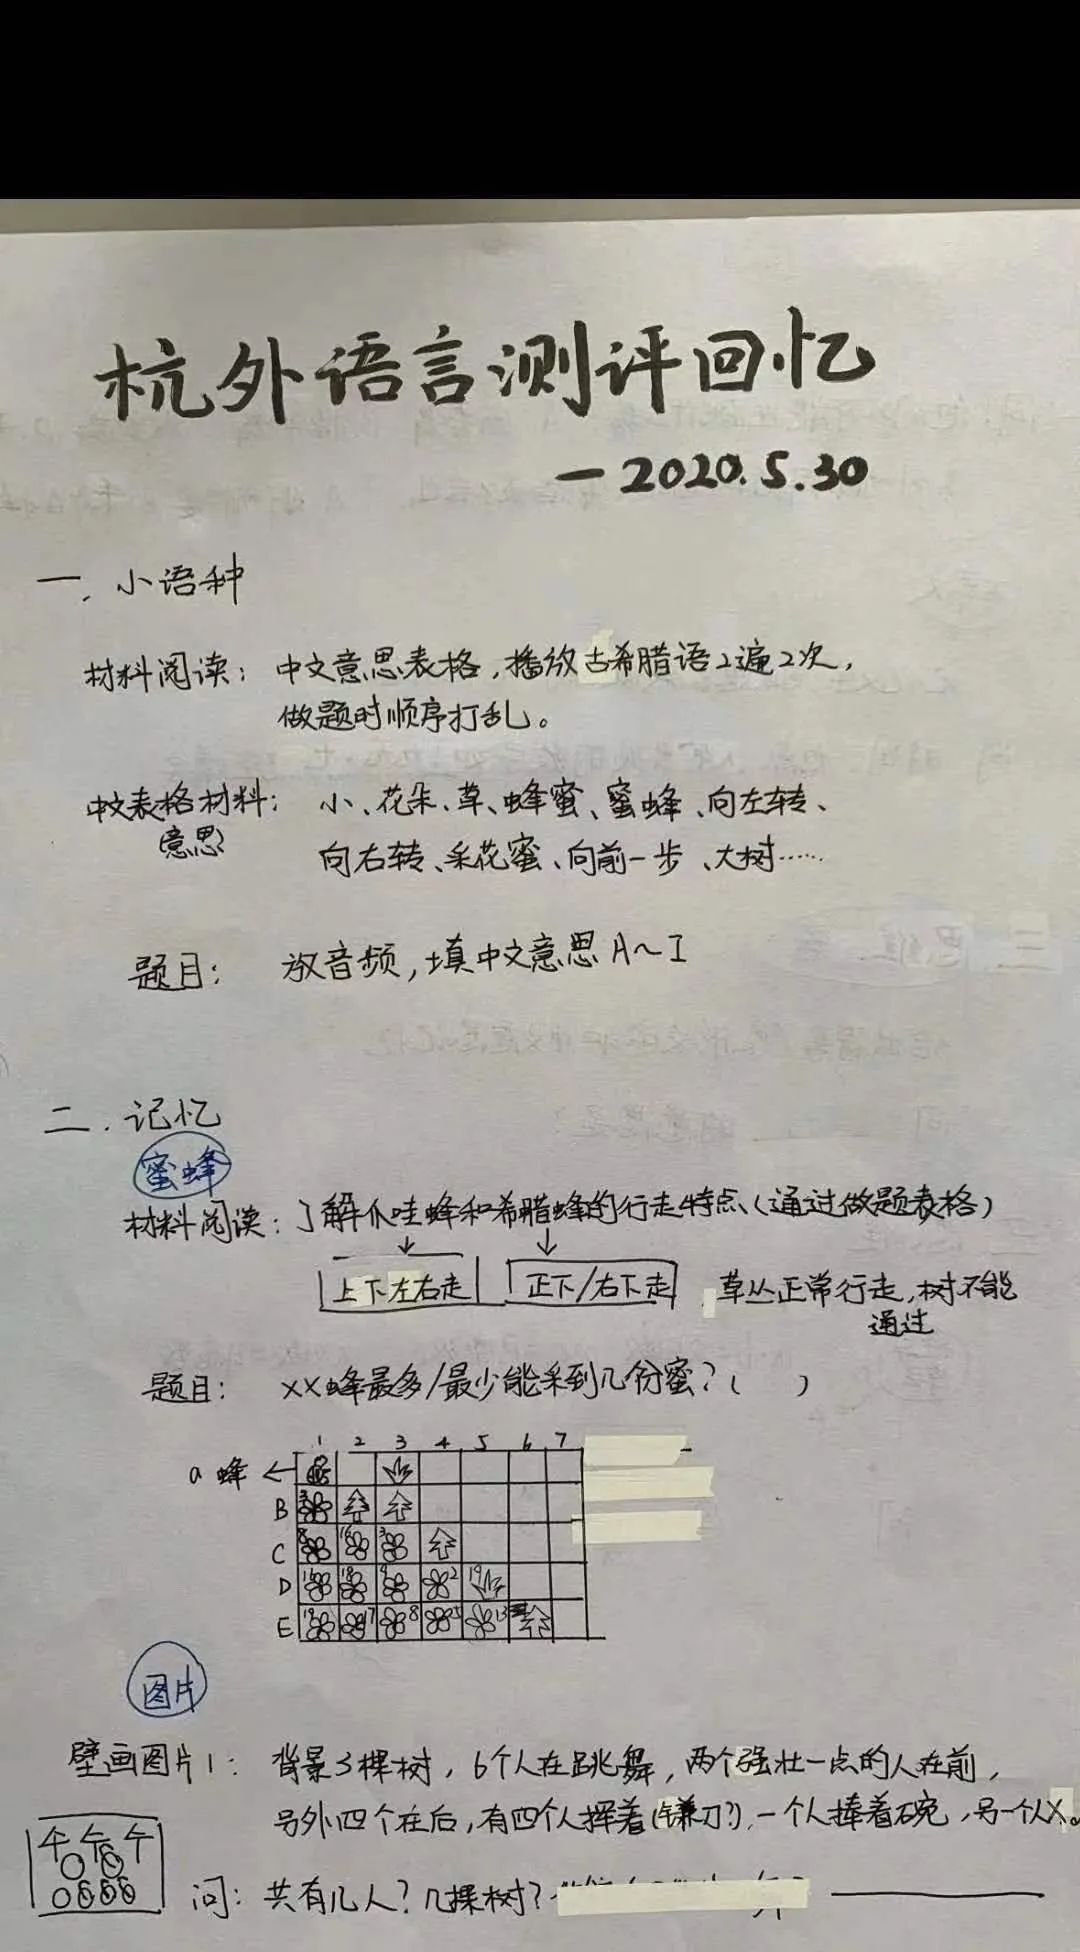 杭外语言测评回忆
—2020.5.30
一、小语种
材料阅读：中文意思表格，播放古希腊语2遍2次，
做题时顺序打乱。
中文表格材料：小、花朵、草、蜂蜜、蜜蜂、向左转、
意思
向右转、采花蜜、向前一步、大树……
题目：放音频，填中文意思A～I
二．记忆
蜜蜂
材料阅读：了解爪哇蜂和希腊蜂的行走特点（通过做题表格）
上下左右走 正下/右下走 草丛正常行走，树不能
通过
题目：xx蜂最多/最少能采到几份蜜？（ ）
1 2 3 4 5 6 7
a 蜂
B 3
C 8 16 3
D 14 18 9 2 19
E 19 7 8 5 13
图片
壁画图片1：背景3棵树，6个人在跳舞，两个强壮一点的人在前，
另外四个在后，有四个人挥着（镰刀？），一个人捧着碗，另一个人X。
问：共有几人？几棵树？